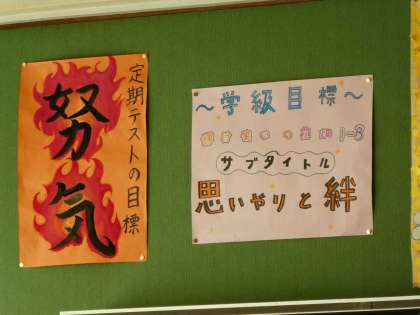 定期テストの目標
努気
〜学級目標〜
1-3
サブタイトル
思いやりと絆